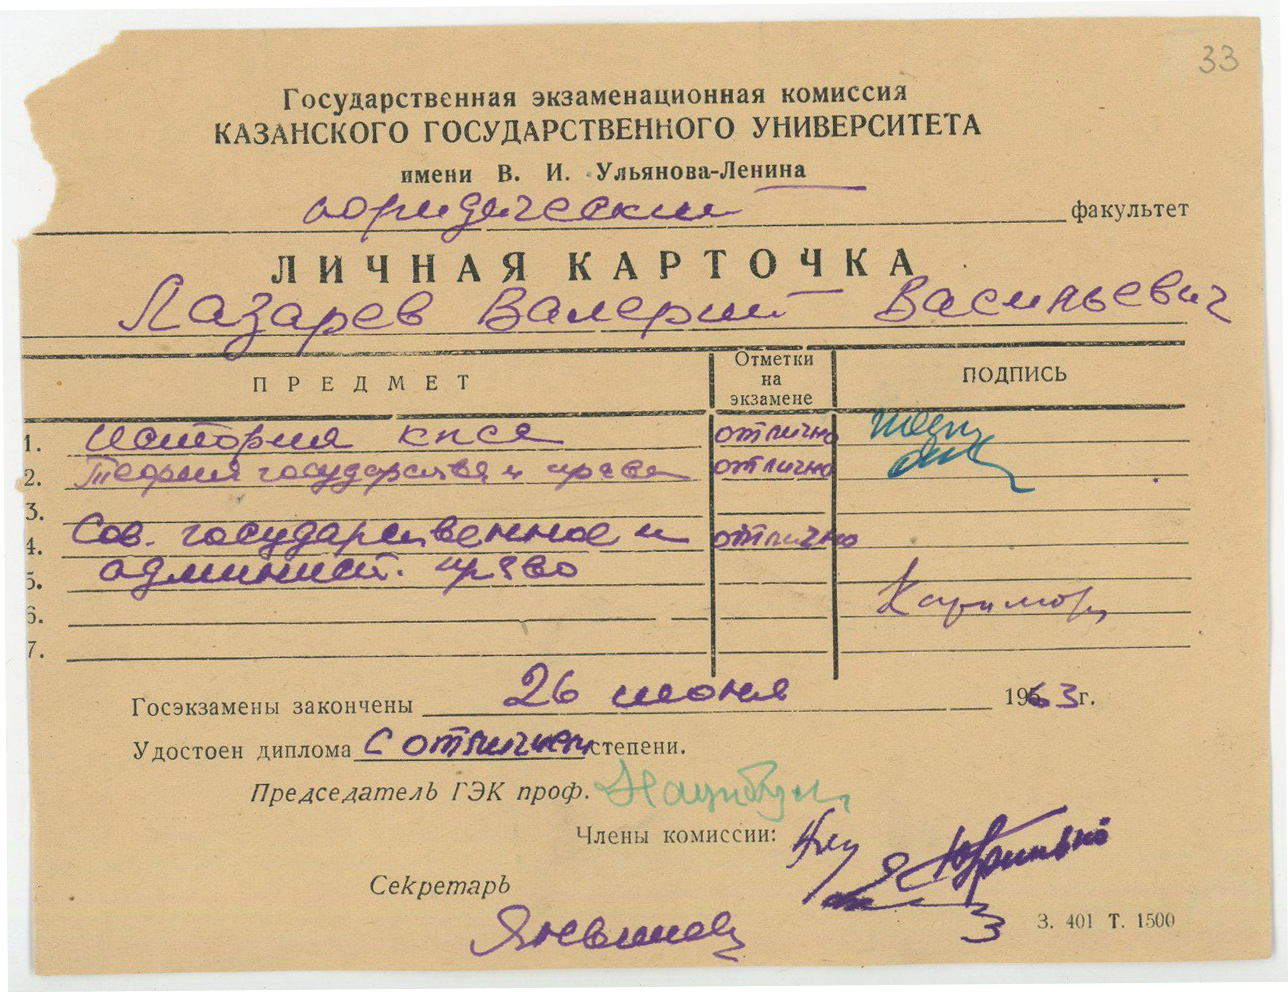 33
Государственная экзаменационная комиссия
КАЗАНСКОГО ГОСУДАРСТВЕННОГО УНИВЕРСИТЕТА
имени В. И. Ульянова-Ленина
юридический факультет
ЛИЧНАЯ КАРТОЧКА
Лазарев Валерий Васильевич
ПРЕДМЕТ Отметки на экзамене ПОДПИСЬ
1. история КПСС отлично
2. Теория государства и права отлично
3.
4. Сов. государственное и отлично
5. админист. право
6.
7.
Госэкзамены закончены 26 июня 1963г.
Удостоен диплома с отличием степени.
Председатель ГЭК проф.
Члены комиссии:
Секретарь
З. 401 Т. 1500